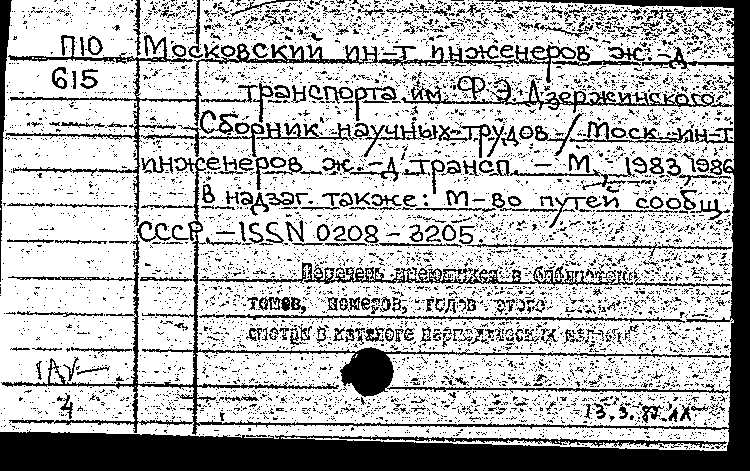 П10 Московский ин-т инженеров ж.-д.
615
транспорта им. Ф.Э. Дзержинского.
Сборник научных трудов / Моск. ин-т
инженеров ж.-д. трансп. – М., 1983, 1986
В надзаг. также: М-во путей сообщ.
СССР. – ISSN 0208-3205.
Перечень имеющихся в библиотеке
томов, номеров, годов этого
смотри в каталоге периодических изданий
4